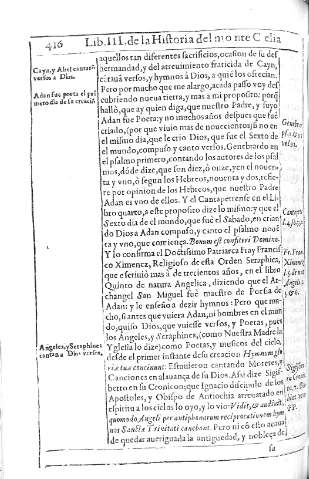 416 Lib. III. de la Historia del monte Celia
aquellos tan diferentes sacrificios, ocasion de su des
hermandad, y del atreuimiento fraticida de Cayn,
cãtauã versos, y hymnos à Dios, a quiẽ los ofrecian.
Pero por mucho que me alargo, acada passo voy des
cubriendo nueua tierra, y mas a mi proposito; porq̃
hallò, que ay quien diga, que nuestro Padre, y suyo
Adan fue Poeta: y no muchos años despues que fuè
criado, (por que viuio mas de nouecientos) sino en
el mismo dia, que le crio Dios, que fue el Sexto de
el mundo, compuso y canto versos. Genebrardo en
el psalmo primero, contando los autores de los psal
mos, dõde dize, que son diez, ò onze, yen el nouen-
ta y vno, ò segun los Hebreos, nouenta y dos, refie-
re por opinion de los Hebreos, que nuestro Padre
Adan es vno de ellos. Y el Cantapetrense en el Li-
bro quarto, a este proposito dize lo mismo: y que el
Sexto dia de el mundo, que fuè el Sabado, en crian
do Dios a Adan compuso, y canto el psalmo nouẽ
ta y vno, que comiença. Bonum est confiteri Domino.
Y lo confirma el Doctissimo Patriarca Fray Francis
co Ximenez, Religioso de esta Orden Seraphica,
que escriuiò mas à de trecientos años, en el libro
Quinto de natura Angelica, diziendo que el Ar-
changel San Miguel fuè maestro de Poesia de
Adan: y le enseño a dezir hymnos: Pero que mu-
cho, si antes que viuiera Adan, ni hombres en el mun
do, quiso Dios, que vuiesse versos, y Poetas, pues
los Angeles, y Seraphines, (como Nuestra Madre la
Yglesia lo dize) como Poetas, y musicos del cielo,
desde el primer instante de su creacion Hymnum glo
riæ tuæ concinunt: Estuuieron cantando Motetes, y
Canciones en alabança de su Dios. Assi dize Sigis-
berto en su Cronicon; que Ignacio discipulo de los
Apostoles, y Obispo de Antiochia arreuatado en
espiritu a los cielos lo oyo, y lo vio Vidit, & audiuit,
quomodo Angeli per antiphonarum reciprocationem hym
nos Sanctæ Trinitati canebant. Pero ni cõ esto acauo
de quedar aueriguada la antiguedad, y nobleza de
la
Cayn, y Abel cantarõ
versos a Dios.
Adan fue poeta el pri
mero dia de su creaciõ
Angeles, y Seraphines
cantan a Dios versos.
Fr. Fran.
Ximenez